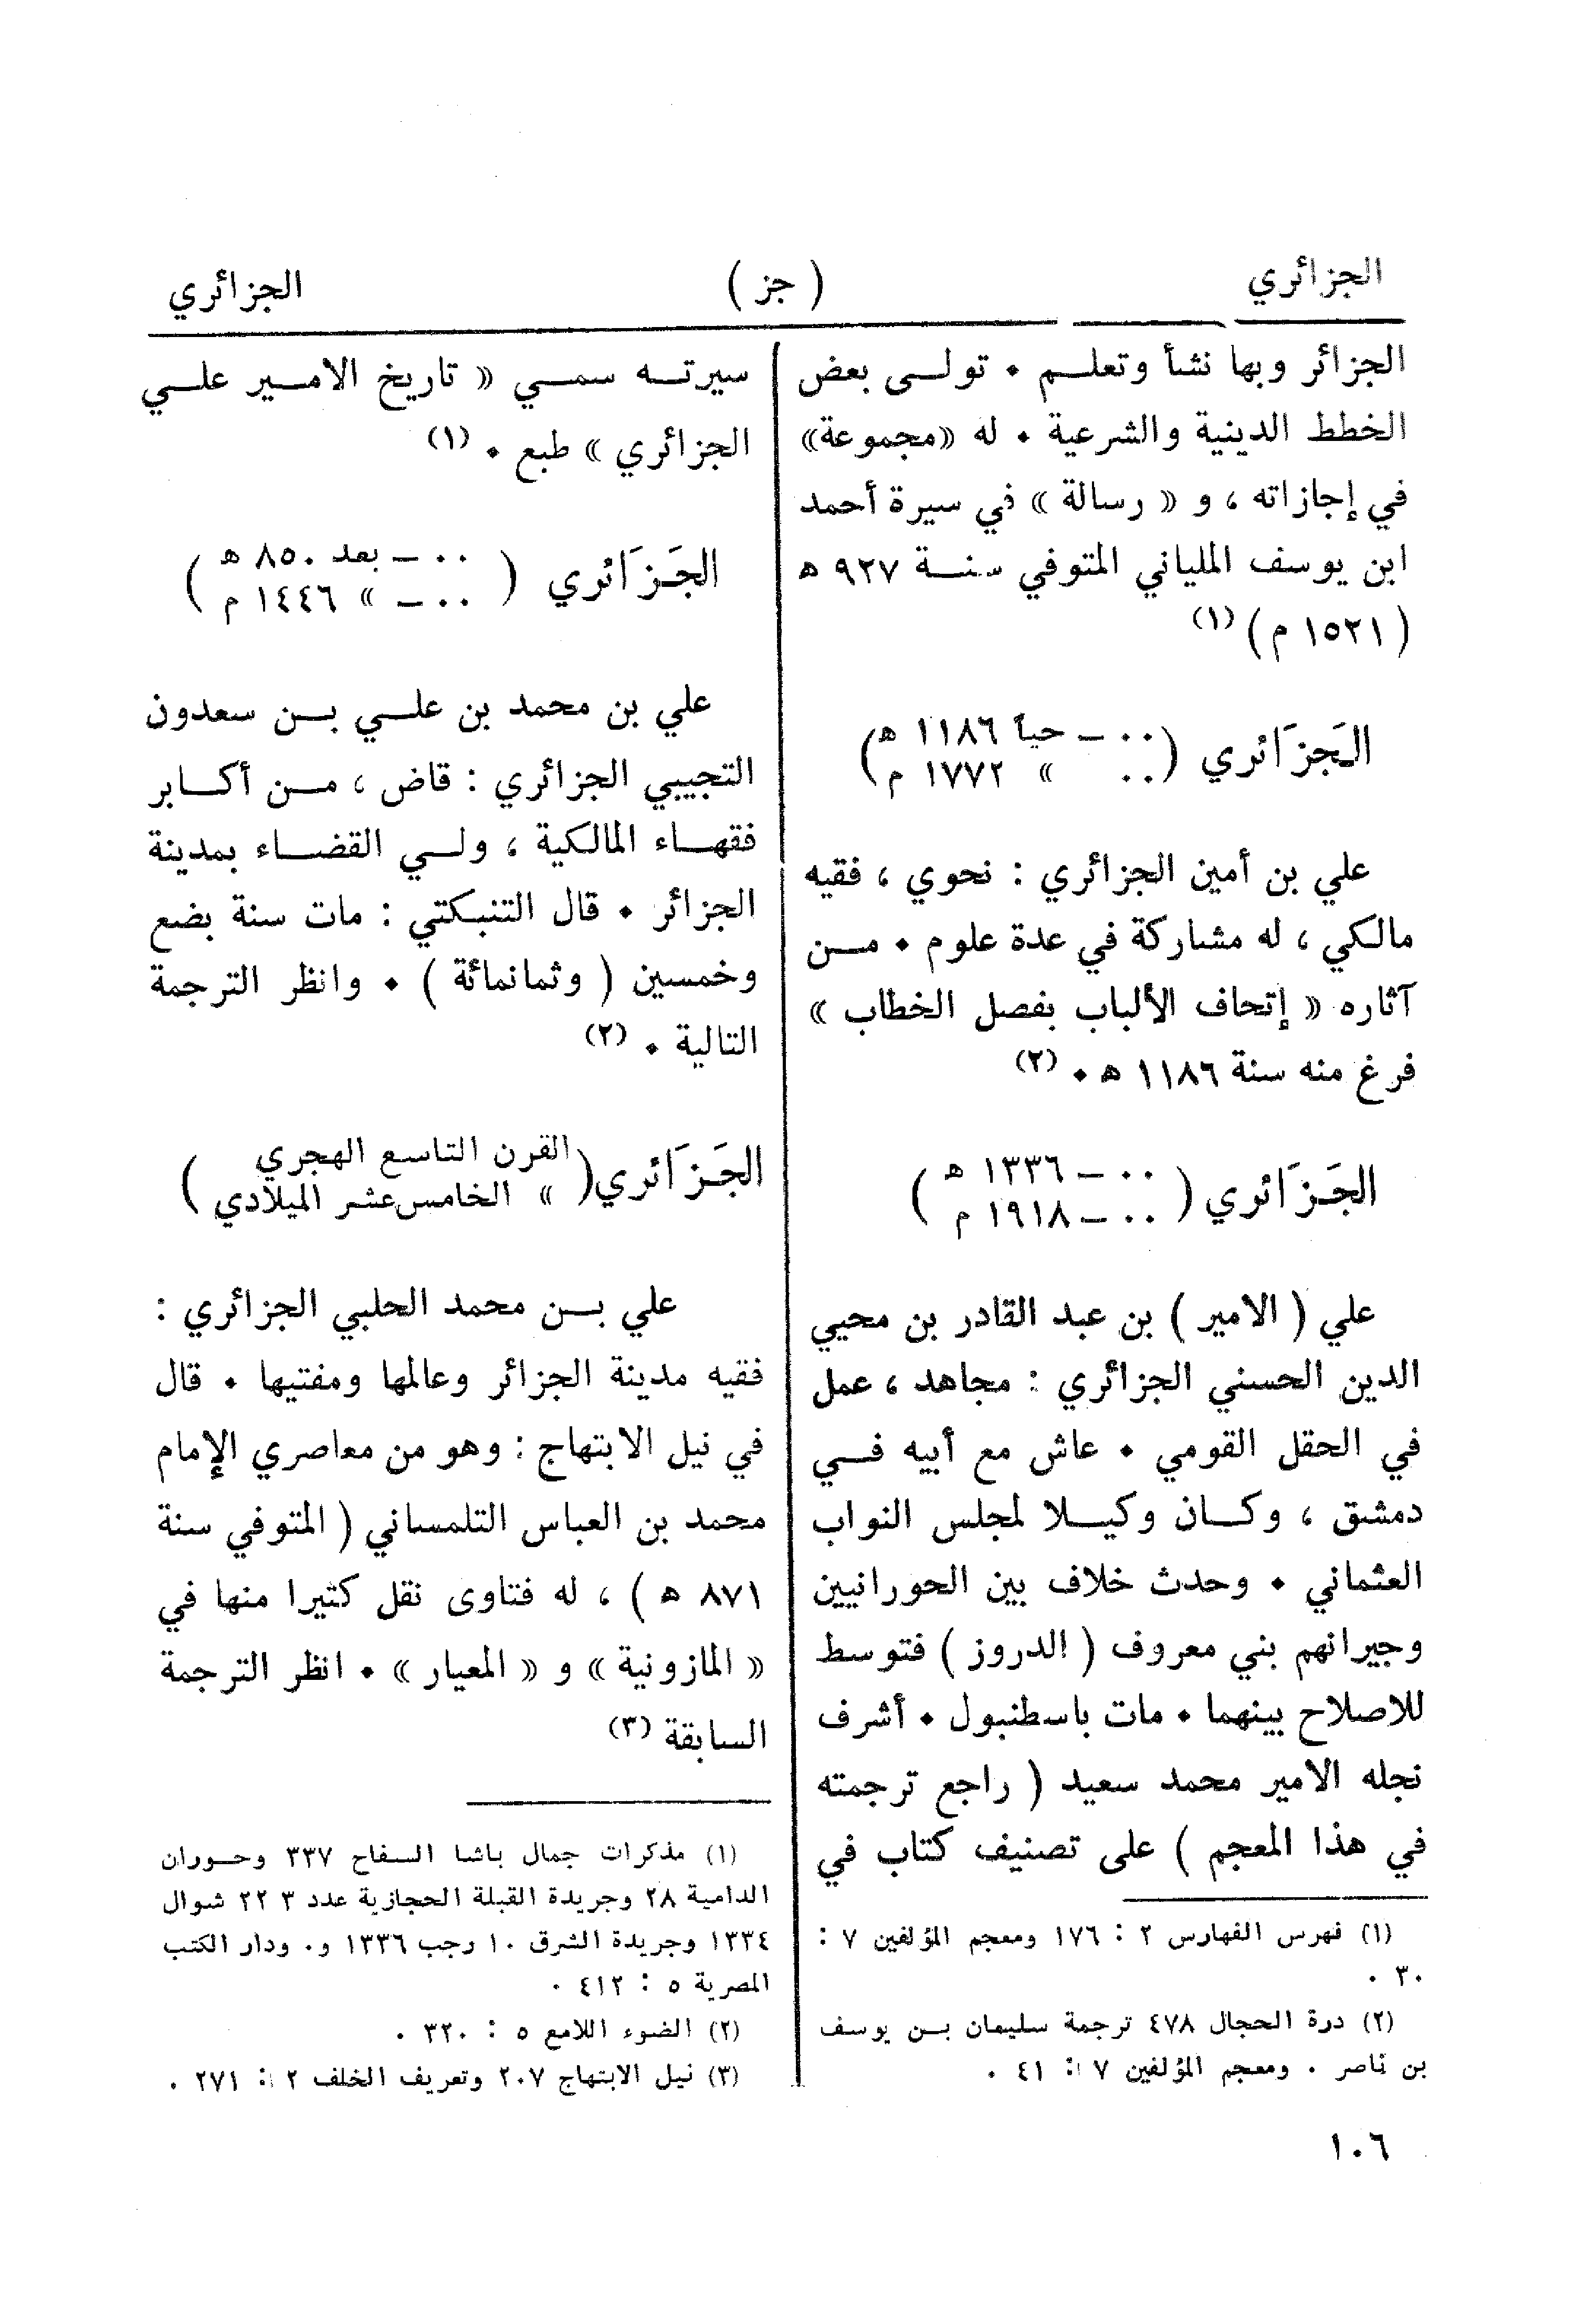 الجزائري ( جز ) الجزائري
الجزائر وبها نشأ وتعلم • تولى بعض
الخطط الدينية والشرعية • له «مجموعة»
في إجازاته ، و « رسالة » في سيرة أحمد
ابن يوسف الملياني المتوفي سنة ٩٢٧ هـ
( ١٥٢١ م ) (١)
الجَزَائري ( ٠٠ – حياً ١١٨٦ هـ
٠٠ » ١٧٧٢ م )
علي بن أمين الجزائري : نحوي ، فقيه
مالكي ، له مشاركة في عدة علوم • من
آثاره « إتحاف الألباب بفصل الخطاب »
فرغ منه سنة ١١٨٦ هـ • (٢)
الجَزَائري ( ٠٠ – ١٣٣٦ هـ
٠٠ – ١٩١٨ م )
علي ( الامير ) بن عبد القادر بن محيي
الدين الحسني الجزائري : مجاهد ، عمل
في الحقل القومي • عاش مع أبيه في
دمشق ، وكان وكيلا لمجلس النواب
العثماني • وحدث خلاف بين الحورانيين
وجيرانهم بني معروف ( الدروز ) فتوسط
للاصلاح بينهما • مات باسطنبول • أشرف
نجله الامير محمد سعيد ( راجع ترجمته
في هذا المعجم ) على تصنيف كتاب في
(١) فهرس الفهارس ٢ : ١٧٦ ومعجم المؤلفين ٧ :
٣٠ .
(٢) درة الحجال ٤٧٨ ترجمة سليمان بن يوسف
بن ناصر . ومعجم المؤلفين ٧ : ٤١ .
سيرته سمي « تاريخ الامير علي
الجزائري » طبع • (١)
الجَزَائري ( ٠٠ – بعد ٨٥٠ هـ
٠٠ – » ١٤٤٦ م )
علي بن محمد بن علي بن سعدون
التجيبي الجزائري : قاض ، من أكابر
فقهاء المالكية ، ولي القضاء بمدينة
الجزائر • قال التنبكتي : مات سنة بضع
وخمسين ( وثمانمائة ) • وانظر الترجمة
التالية • (٢)
الجَزَائري ( القرن التاسع الهجري
» الخامس عشر الميلادي )
علي بن محمد الحلبي الجزائري :
فقيه مدينة الجزائر وعالمها ومفتيها • قال
في نيل الابتهاج : وهو من معاصري الإمام
محمد بن العباس التلمساني ( المتوفي سنة
٨٧١ هـ ) ، له فتاوى نقل كثيرا منها في
« المازونية » و « المعيار » • انظر الترجمة
السابقة (٣)
(١) مذكرات جمال باشا السفاح ٣٣٧ وحوران
الدامية ٢٨ وجريدة القبلة الحجازية عدد ٣ ٢٢ شوال
١٣٣٤ وجريدة الشرق ١٠ رجب ١٣٣٦ و. ودار الكتب
المصرية ٥ : ٤١٢ .
(٢) الضوء اللامع ٥ : ٣٢٠ .
(٣) نيل الابتهاج ٢٠٧ وتعريف الخلف ٢ : ٢٧١ .
١٠٦